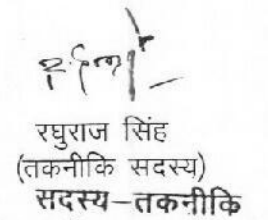 रघुराज सिंह
(तकनीकि सदस्य)
सदस्य–तकनीकि